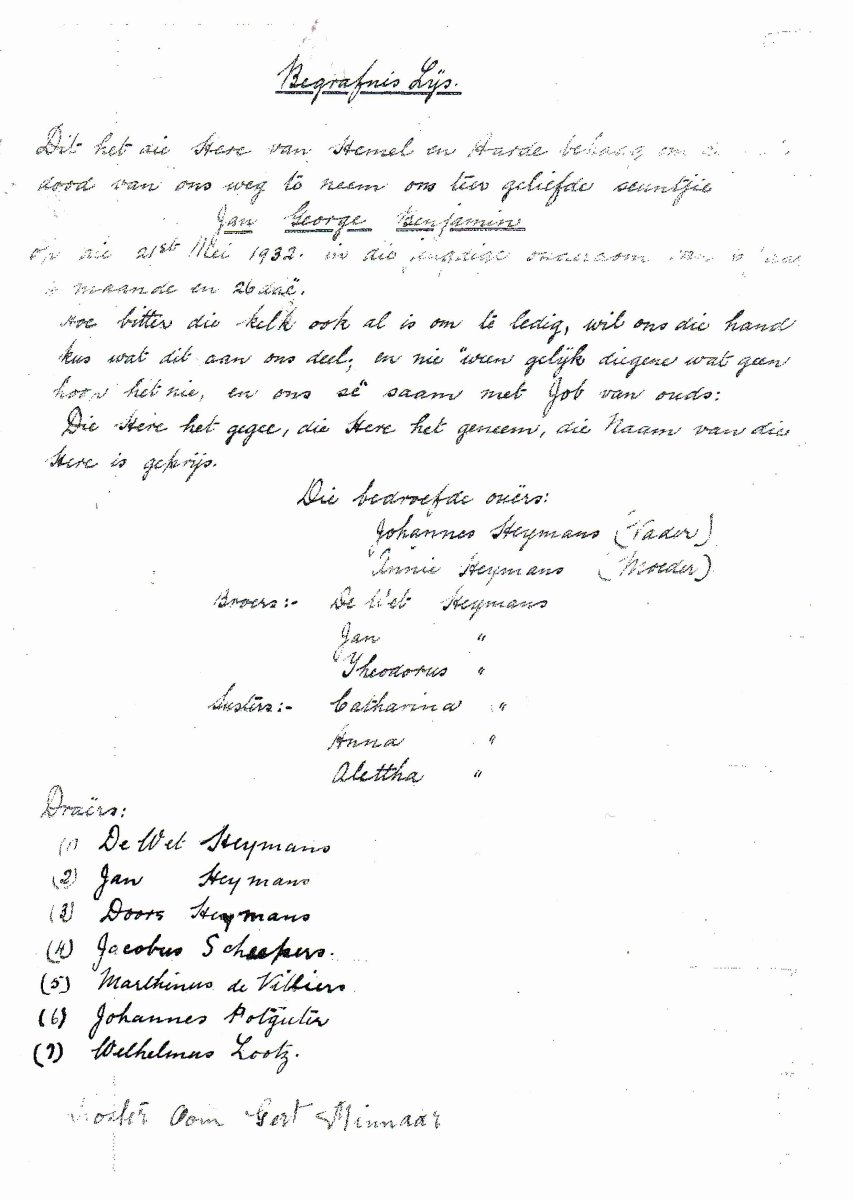 Begrafnis Lijs.
Dit het die Here van Hemel en Aarde behaag om
dood van ons weg te neem ons teer geliefde seuntjie
Jan George Benjamin
op die 21st Mei 1932. in die jeugdige ouderdom van
maande en 26 daë.
Hoe bitter die kelk ook al is om te ledig, wil ons die hand
kus wat dit aan ons deel; en nie ween gelijk diegene wat geen
hoop het nie, en ons sê saam met Job van ouds:
Die Here het gegee, die Here het geneem, die Naam van die
Here is geprijs.
Die bedroefde ouërs:
Johannes Heymans (Vader)
Annie Heymans (Moeder)
Broers:- De Wet Heymans
Jan "
Theodorus "
Susters:- Catharina "
Anna "
Alettha "
Draërs:
(1) De Wet Heymans
(2) Jan Heymans
(3) Doors Heymans
(4) Jacobus Scheepers.
(5) Marthinus de Villiers
(6) Johannes Potgieter
(7) Welhelmus Lootz.
Koster Oom Gert Minnaar